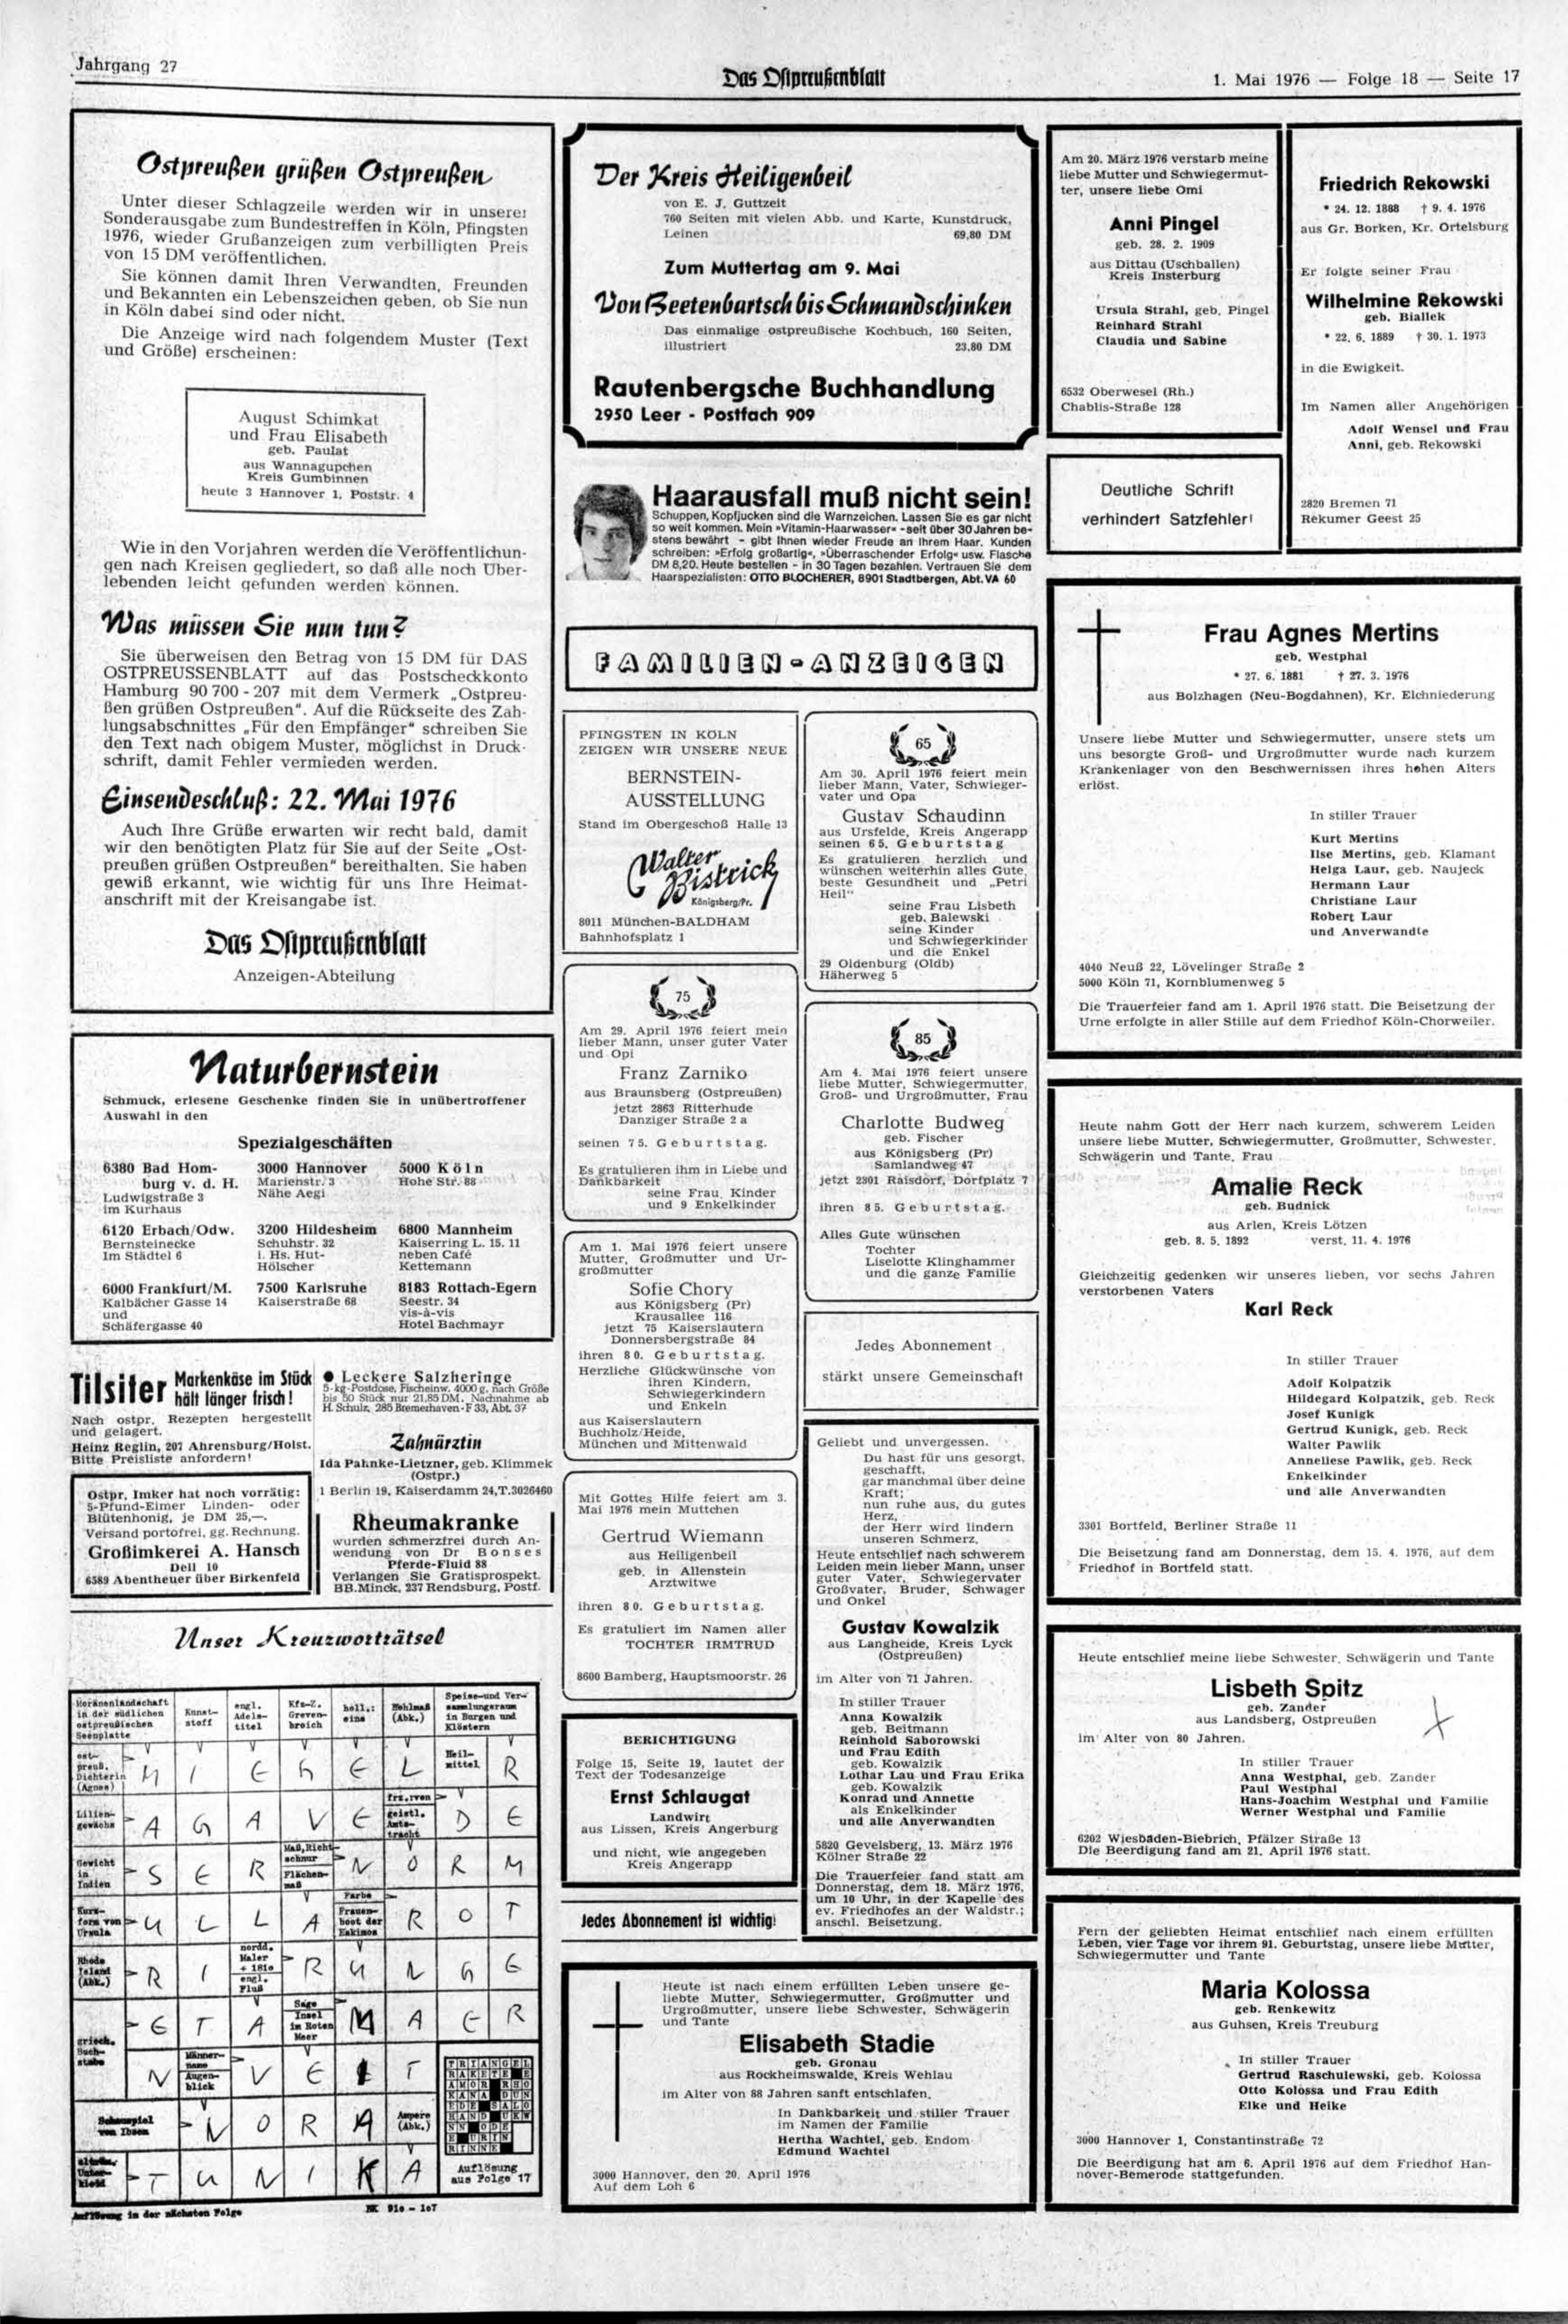 Jahrgang 27
Das Ostpreußenblatt
1. Mai 1976 — Folge 18 — Seite 17
Ostpreußen grüßen Ostpreußen
Unter dieser Schlagzeile werden wir in unserer
Sonderausgabe zum Bundestreffen in Köln, Pfingsten
1976, wieder Grußanzeigen zum verbilligten Preis
von 15 DM veröffentlichen.
Sie können damit Ihren Verwandten, Freunden
und Bekannten ein Lebenszeichen geben, ob Sie nun
in Köln dabei sind oder nicht.
Die Anzeige wird nach folgendem Muster (Text
und Größe) erscheinen:
August Schimkat
und Frau Elisabeth
geb. Paulat
aus Wannagupchen
Kreis Gumbinnen
heute 3 Hannover 1, Poststr. 4
Wie in den Vorjahren werden die Veröffentlichun-
gen nach Kreisen gegliedert, so daß alle noch Über-
lebenden leicht gefunden werden können.
Was müssen Sie nun tun?
Sie überweisen den Betrag von 15 DM für DAS
OSTPREUSSENBLATT auf das Postscheckkonto
Hamburg 90 700 - 207 mit dem Vermerk „Ostpreu-
ßen grüßen Ostpreußen". Auf die Rückseite des Zah-
lungsabschnittes „Für den Empfänger" schreiben Sie
den Text nach obigem Muster, möglichst in Druck-
schrift, damit Fehler vermieden werden.
Einsendeschluß: 22. Mai 1976
Auch Ihre Grüße erwarten wir recht bald, damit
wir den benötigten Platz für Sie auf der Seite „Ost-
preußen grüßen Ostpreußen" bereithalten. Sie haben
gewiß erkannt, wie wichtig für uns Ihre Heimat-
anschrift mit der Kreisangabe ist.
Das Ostpreußenblatt
Anzeigen-Abteilung
Naturbernstein
Schmuck, erlesene Geschenke finden Sie in unübertroffener
Auswahl in den
Spezialgeschäften
6380 Bad Hom-
burg v. d. H.
Ludwigstraße 3
im Kurhaus
3000 Hannover
Marienstr. 3
Nähe Aegi
5000 Köln
Hohe Str. 88
6120 Erbach/Odw.
Bernsteinecke
Im Städtel 6
3200 Hildesheim
Schuhstr. 32
i. Hs. Hut-
Hölscher
6800 Mannheim
Kaiserring L. 15. 11
neben Café
Kettemann
6000 Frankfurt/M.
Kalbächer Gasse 14
und
Schäfergasse 40
7500 Karlsruhe
Kaiserstraße 68
8183 Rottach-Egern
Seestr. 34
vis-à-vis
Hotel Bachmayr
Tilsiter Markenkäse im Stück
hält länger frisch!
Nach ostpr. Rezepten hergestellt
und gelagert.
Heinz Reglin, 207 Ahrensburg/Holst.
Bitte Preisliste anfordern!
● Leckere Salzheringe
5-kg-Postdose, Fischeinw. 4000 g, nach Größe
bis 50 Stück nur 21,85 DM, Nachnahme ab
H. Schulz, 285 Bremerhaven-F 33, Abt. 37
Zahnärztin
Ida Pahnke-Lietzner, geb. Klimmek
(Ostpr.)
1 Berlin 19, Kaiserdamm 24, T. 3026460
Ostpr. Imker hat noch vorrätig:
5-Pfund-Eimer Linden- oder
Blütenhonig, je DM 25,—.
Versand portofrei, gg. Rechnung.
Großimkerei A. Hansch
Dell 10
6589 Abentheuer über Birkenfeld
Rheumakranke
wurden schmerzfrei durch An-
wendung von Dr Bonses
Pferde-Fluid 88
Verlangen Sie Gratisprospekt.
BB. Minck, 237 Rendsburg, Postf.
Unser Kreuzworträtsel
Moränenlandschaft
in der südlichen
ostpreußischen
Seenplatte
Kunst-
stoff
engl.
Adels-
titel
Kfz-Z.
Greven-
broich
holl.:
eins
Hohlmaß
(Abk.)
Speise-und Ver-
sammlungsraum
in Burgen und
Klöstern
ost-
preuß.
Dichterin
(Agnes)
M I E G E L
Heil-
mittel
R
Lilien-
gewächs
A G A V E
frz.:von
geistl.
Amts-
tracht
D E
Gewicht
in
Indien
S E R
Maß,Richt-
schnur
Flächen-
maß
N O R M
Kurz-
form von
Ursula
U L L A
Farbe
Frauen-
boot der
Eskimos
R O T
Rhode
Island
(Abk.)
R I
nordd.
Maler
+ 1810
engl.
Fluß
R U N G E
griech.
Buch-
stabe
E T A
Sage
Insel
im Roten
Meer
M A E R
N
Männer-
name
Augen-
blick
V E I T
Schauspiel
von Ibsen
N O R A
Ampere
(Abk.)
Unter-
kleid
T U N I K A
TRIANGEL
RAKETE E
AMOR RHO
KANA DUN
EDE SALO
HAND UKW
NN ODE
E URIN
RINNE
Auflösung
aus Folge 17
Auflösung in der nächsten Folge
BK 910 - 107
Der Kreis Heiligenbeil
von E. J. Guttzeit
760 Seiten mit vielen Abb. und Karte, Kunstdruck,
Leinen 69,80 DM
Zum Muttertag am 9. Mai
Von Beetenbartsch bis Schmandschinken
Das einmalige ostpreußische Kochbuch, 160 Seiten,
illustriert 23,80 DM
Rautenbergsche Buchhandlung
2950 Leer - Postfach 909
Haarausfall muß nicht sein!
Schuppen, Kopfjucken sind die Warnzeichen. Lassen Sie es gar nicht
so weit kommen. Mein »Vitamin-Haarwasser« - seit über 30 Jahren be-
stens bewährt - gibt Ihnen wieder Freude an Ihrem Haar. Kunden
schreiben: »Erfolg großartig«, »Überraschender Erfolg« usw. Flasche
DM 8,20. Heute bestellen - in 30 Tagen bezahlen. Vertrauen Sie dem
Haarspezialisten: OTTO BLOCHERER, 8901 Stadtbergen, Abt. VA 60
FAMILIEN-ANZEIGEN
PFINGSTEN IN KÖLN
ZEIGEN WIR UNSERE NEUE
BERNSTEIN-
AUSSTELLUNG
Stand im Obergeschoß Halle 13
Walter
Bistrick
Königsberg/Pr.
8011 München-BALDHAM
Bahnhofsplatz 1
75
Am 29. April 1976 feiert mein
lieber Mann, unser guter Vater
und Opi
Franz Zarniko
aus Braunsberg (Ostpreußen)
jetzt 2863 Ritterhude
Danziger Straße 2 a
seinen 75. Geburtstag.
Es gratulieren ihm in Liebe und
Dankbarkeit
seine Frau, Kinder
und 9 Enkelkinder
Am 1. Mai 1976 feiert unsere
Mutter, Großmutter und Ur-
großmutter
Sofie Chory
aus Königsberg (Pr)
Krausallee 116
jetzt 75 Kaiserslautern
Donnersbergstraße 84
ihren 80. Geburtstag.
Herzliche Glückwünsche von
ihren Kindern,
Schwiegerkindern
und Enkeln
aus Kaiserslautern
Buchholz/Heide,
München und Mittenwald
Mit Gottes Hilfe feiert am 3.
Mai 1976 mein Muttchen
Gertrud Wiemann
aus Heiligenbeil
geb. in Allenstein
Arztwitwe
ihren 80. Geburtstag.
Es gratuliert im Namen aller
TOCHTER IRMTRUD
8600 Bamberg, Hauptsmoorstr. 26
BERICHTIGUNG
Folge 15, Seite 19, lautet der
Text der Todesanzeige
Ernst Schlaugat
Landwirt
aus Lissen, Kreis Angerburg
und nicht, wie angegeben
Kreis Angerapp
Jedes Abonnement ist wichtig!
65
Am 30. April 1976 feiert mein
lieber Mann, Vater, Schwieger-
vater und Opa
Gustav Schaudinn
aus Ursfelde, Kreis Angerapp
seinen 65. Geburtstag
Es gratulieren herzlich und
wünschen weiterhin alles Gute,
beste Gesundheit und „Petri
Heil"
seine Frau Lisbeth
geb. Balewski
seine Kinder
und Schwiegerkinder
und die Enkel
29 Oldenburg (Oldb)
Häherweg 5
85
Am 4. Mai 1976 feiert unsere
liebe Mutter, Schwiegermutter,
Groß- und Urgroßmutter, Frau
Charlotte Budweg
geb. Fischer
aus Königsberg (Pr)
Samlandweg 47
jetzt 2301 Raisdorf, Dorfplatz 7
ihren 85. Geburtstag.
Alles Gute wünschen
Tochter
Liselotte Klinghammer
und die ganze Familie
Jedes Abonnement
stärkt unsere Gemeinschaft
Geliebt und unvergessen.
Du hast für uns gesorgt,
geschafft,
gar manchmal über deine
Kraft;
nun ruhe aus, du gutes
Herz,
der Herr wird lindern
unseren Schmerz.
Heute entschlief nach schwerem
Leiden mein lieber Mann, unser
guter Vater, Schwiegervater
Großvater, Bruder, Schwager
und Onkel
Gustav Kowalzik
aus Langheide, Kreis Lyck
(Ostpreußen)
im Alter von 71 Jahren.
In stiller Trauer
Anna Kowalzik
geb. Beitmann
Reinhold Saborowski
und Frau Edith
geb. Kowalzik
Lothar Lau und Frau Erika
geb. Kowalzik
Konrad und Annette
als Enkelkinder
und alle Anverwandten
5820 Gevelsberg, 13. März 1976
Kölner Straße 22
Die Trauerfeier fand statt am
Donnerstag, dem 18. März 1976,
um 10 Uhr, in der Kapelle des
ev. Friedhofes an der Waldstr.;
anschl. Beisetzung.
Heute ist nach einem erfüllten Leben unsere ge-
liebte Mutter, Schwiegermutter, Großmutter und
Urgroßmutter, unsere liebe Schwester, Schwägerin
und Tante
Elisabeth Stadie
geb. Gronau
aus Rockheimswalde, Kreis Wehlau
im Alter von 88 Jahren sanft entschlafen.
In Dankbarkeit und stiller Trauer
im Namen der Familie
Hertha Wachtel, geb. Endom
Edmund Wachtel
3000 Hannover, den 20. April 1976
Auf dem Loh 6
Am 20. März 1976 verstarb meine
liebe Mutter und Schwiegermut-
ter, unsere liebe Omi
Anni Pingel
geb. 28. 2. 1909
aus Dittau (Uschballen)
Kreis Insterburg
Ursula Strahl, geb. Pingel
Reinhard Strahl
Claudia und Sabine
6532 Oberwesel (Rh.)
Chablis-Straße 128
Deutliche Schrift
verhindert Satzfehler!
Friedrich Rekowski
* 24. 12. 1888 † 9. 4. 1976
aus Gr. Borken, Kr. Ortelsburg
Er folgte seiner Frau
Wilhelmine Rekowski
geb. Biallek
* 22. 6. 1889 † 30. 1. 1973
in die Ewigkeit.
Im Namen aller Angehörigen
Adolf Wensel und Frau
Anni, geb. Rekowski
2820 Bremen 71
Rekumer Geest 25
Frau Agnes Mertins
geb. Westphal
* 27. 6. 1881 † 27. 3. 1976
aus Bolzhagen (Neu-Bogdahnen), Kr. Elchniederung
Unsere liebe Mutter und Schwiegermutter, unsere stets um
uns besorgte Groß- und Urgroßmutter wurde nach kurzem
Krankenlager von den Beschwernissen ihres hohen Alters
erlöst.
In stiller Trauer
Kurt Mertins
Ilse Mertins, geb. Klamant
Helga Laur, geb. Naujeck
Hermann Laur
Christiane Laur
Robert Laur
und Anverwandte
4040 Neuß 22, Lövelinger Straße 2
5000 Köln 71, Kornblumenweg 5
Die Trauerfeier fand am 1. April 1976 statt. Die Beisetzung der
Urne erfolgte in aller Stille auf dem Friedhof Köln-Chorweiler.
Heute nahm Gott der Herr nach kurzem, schwerem Leiden
unsere liebe Mutter, Schwiegermutter, Großmutter, Schwester,
Schwägerin und Tante, Frau
Amalie Reck
geb. Budnick
aus Arlen, Kreis Lötzen
geb. 8. 5. 1892 verst. 11. 4. 1976
Gleichzeitig gedenken wir unseres lieben, vor sechs Jahren
verstorbenen Vaters
Karl Reck
In stiller Trauer
Adolf Kolpatzik
Hildegard Kolpatzik, geb. Reck
Josef Kunigk
Gertrud Kunigk, geb. Reck
Walter Pawlik
Anneliese Pawlik, geb. Reck
Enkelkinder
und alle Anverwandten
3301 Bortfeld, Berliner Straße 11
Die Beisetzung fand am Donnerstag, dem 15. 4. 1976, auf dem
Friedhof in Bortfeld statt.
Heute entschlief meine liebe Schwester, Schwägerin und Tante
Lisbeth Spitz
geb. Zander
aus Landsberg, Ostpreußen
im Alter von 80 Jahren.
In stiller Trauer
Anna Westphal, geb. Zander
Paul Westphal
Hans-Joachim Westphal und Familie
Werner Westphal und Familie
6202 Wiesbaden-Biebrich, Pfälzer Straße 13
Die Beerdigung fand am 21. April 1976 statt.
Fern der geliebten Heimat entschlief nach einem erfüllten
Leben, vier Tage vor ihrem 91. Geburtstag, unsere liebe Mutter,
Schwiegermutter und Tante
Maria Kolossa
geb. Renkewitz
aus Guhsen, Kreis Treuburg
In stiller Trauer
Gertrud Raschulewski, geb. Kolossa
Otto Kolossa und Frau Edith
Elke und Heike
3000 Hannover 1, Constantinstraße 72
Die Beerdigung hat am 6. April 1976 auf dem Friedhof Han-
nover-Bemerode stattgefunden.